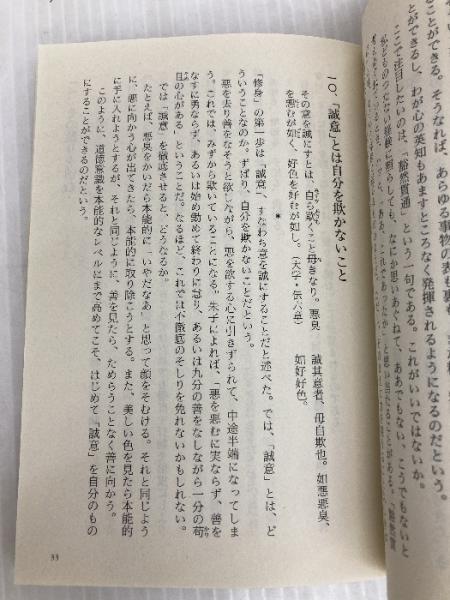 とができる。そうなれば、あらゆる事物の表も裏も
とができるし、わが心の英知もあますところなく発揮されるようになるのだという。
ここで注目したいのは、「豁然貫通」という一句である。これがいいではないか。
一〇、「誠意」とは自分を欺かないこと
その意を誠にすとは、自ら欺くこと毋きなり。悪臭
を悪むが如く、好色を好むが如し。(大学・伝六章)
誠其意者、毋自欺也。如悪悪臭、
如好好色。
*
「修身」の第一歩は「誠意」、すなわち意を誠にすることだと述べた。では、「誠意」とは、ど
ういうことなのか。ずばり、自分を欺かないことだという。
悪を去り善をなそうと欲しながら、悪を欲する心に引きずられて、中途半端になってしま
う。これでは、みずから欺いていることになる。朱子によれば、「悪を悪むに実ならず、善を
なすに勇ならず、あるいは始め勤めて終わりに怠り、あるいは九分の善をなしながら一分の苟
且の心がある」ということだ。なるほど、これでは不徹底のそしりを免れないかもしれない。
では「誠意」を徹底させると、どうなるか。
たとえば、悪臭をかいだら本能的に「いやだなあ」と思って顔をそむける。それと同じよう
に、悪に向かう心が出てきたら、本能的に取り除こうとする。また、美しい色を見たら本能的
に手に入れようとするが、それと同じように、善を見たら、ためらうことなく善に向かう。
このように、道徳意識を本能的なレベルにまで高めてこそ、はじめて「誠意」を自分のもの
にすることができるのだという。
33